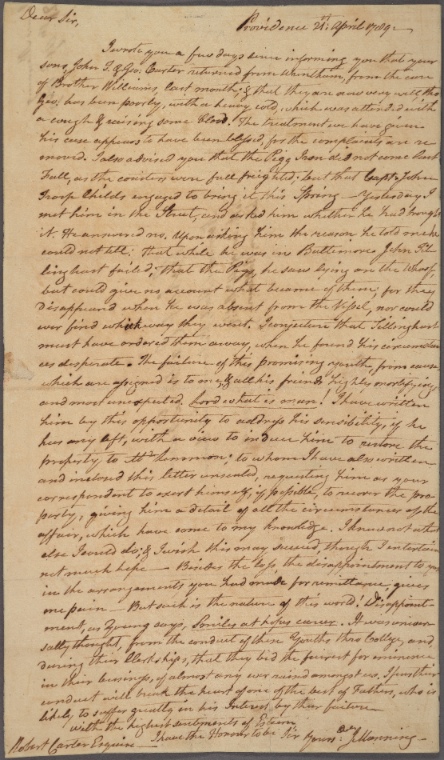 Dear Sir,
Providence 21st April 1789
I wrote you a few days since informing you that your
sons John T. & Geo. Carter returned from Wrentham, from the care
of Brother Williams, last month; & that they are now very well, tho
Geo. has been poorly, with a heavy cold, which was attended with
a cough & raising some blood. The treatment we have given
his case appears to have been blessed, for the complaints are re
moved. I also advised you that the Pigg Iron did not come last
Fall, as the coasters were full freighted; but that Capt. John
Troop Childs engaged to bring it this Spring — Yesterday I
met him in the Street, and asked him whether he had brought
it. He answered no. Upon asking him the reason he told me he
could not tell; that while he was in Baltimore John
linghast failed; that the Piggs he saw lying on the Wharf,
but could give no account what became of them; for they
disappeared when he was absent from the Vessel, nor could
ever find which way they went. I conjecture that Tillinghast
must have ordered them away, when he found his circumstan
ces desperate. The failure of this promising youth, from causes
which are assigned is to me, & all his friends highly mortifying,
and most unexpected. Lord what is man! I have written
him by this opportunity to address his sensibility, if he
has any left, with a view to induce him to restore the
property to to whom I have also written
and inclosed this letter unsealed, requesting him as your
correspondent to exert himself, if possible, to recover the pro
perty, giving him a detail of all the circumstances of the
affair, which have come to my knowledge. I know not what
else I could do; & I wish this may succeed, though I entertain
not much hope — Besides the loss, the disappointment to you
in the arrangements you had made for remittance, gives
me pain — But such is the nature of this world! Disappoint
ment, as Young says, Smiles at hopes career. It was univer
sally thought, from the conduct of these Youths thro College, and
during their Clerkships, that they bid the fairest for eminence
in their business, of almost any ever raised amongst us. I fear their
conduct will break the heart of one of the best of Fathers, who is
likely to suffer greatly in his Interest, by their failure
With the highest sentiments of Esteem
I have the Honour to be Sir Yours &c J Manning
Robert Carter Esquire